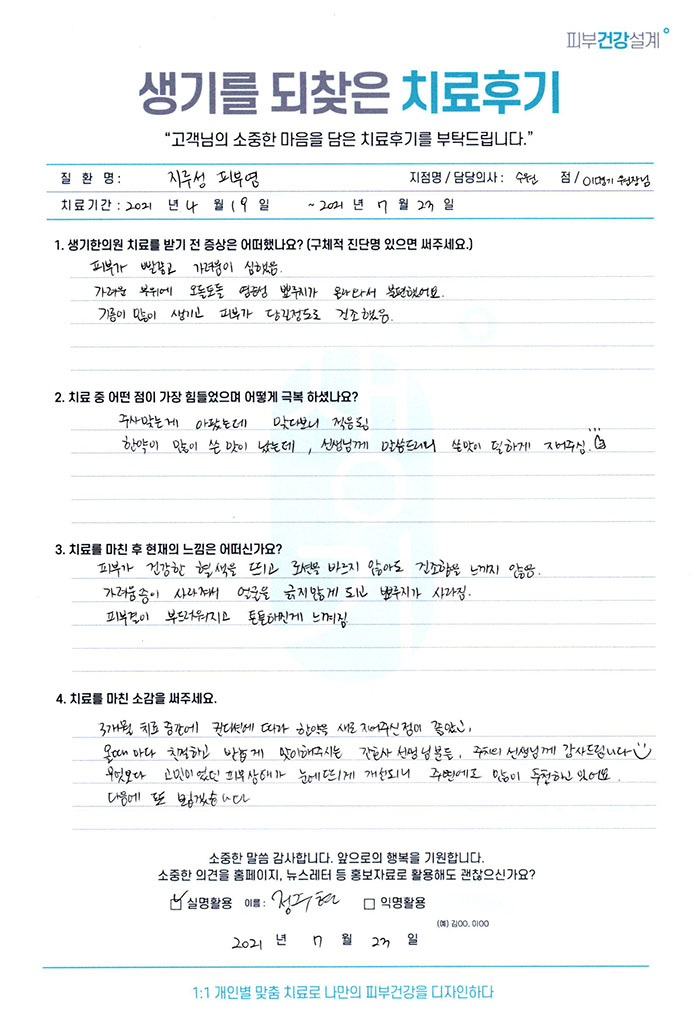 피부건강설계
생기를 되찾은 치료후기
“고객님의 소중한 마음을 담은 치료후기를 부탁드립니다.”
질 환 명 : 지루성 피부염 지점명 / 담당의사 : 수원 점 / 이명기 원장님
치료기간 : 2021 년 4 월 19 일 ~ 2021 년 7 월 23 일
1. 생기한의원 치료를 받기 전 증상은 어떠했나요? (구체적 진단명 있으면 써주세요.)
피부가 빨갛고 가려움이 심했음.
가려운 부위에 오돌토돌 염증성 뾰루지가 올라와서 불편했어요.
기름이 많이 생기고 피부가 당길정도로 건조했음.
2. 치료 중 어떤 점이 가장 힘들었으며 어떻게 극복 하셨나요?
주사맞는게 아팠는데 맞다보니 적응됨
한약이 많이 쓴 맛이 났는데, 선생님께 말씀드리니 쓴맛이 덜하게 지어주심.
3. 치료를 마친 후 현재의 느낌은 어떠신가요?
피부가 건강한 혈색을 뜨고 로션을 바르지 않아도 건조함을 느끼지 않음.
가려움증이 사라져서 얼굴을 긁지않게 되고 뾰루지가 사라짐.
피부결이 부드러워지고 톤톤해진게 느껴짐
4. 치료를 마친 소감을 써주세요.
3개월 치료 중간에 컨디션에 따라 한약을 새로 지어주신점이 좋았고,
올때 마다 친절하고 반갑게 맞이해주시는 간호사 선생님분들, 주치의 선생님께 감사드립니다
무엇보다 고민이었던 피부상태가 눈에뜨게 개선되니 주변에도 많이 추천하고 있어요.
다음에 또 뵙겠습니다
소중한 말씀 감사합니다. 앞으로의 행복을 기원합니다.
소중한 의견을 홈페이지, 뉴스레터 등 홍보자료로 활용해도 괜찮으신가요?
실명활용 이름 : 정주현 익명활용
(예) 김OO, 이OO
2021 년 7 월 23 일
1:1 개인별 맞춤 치료로 나만의 피부건강을 디자인하다